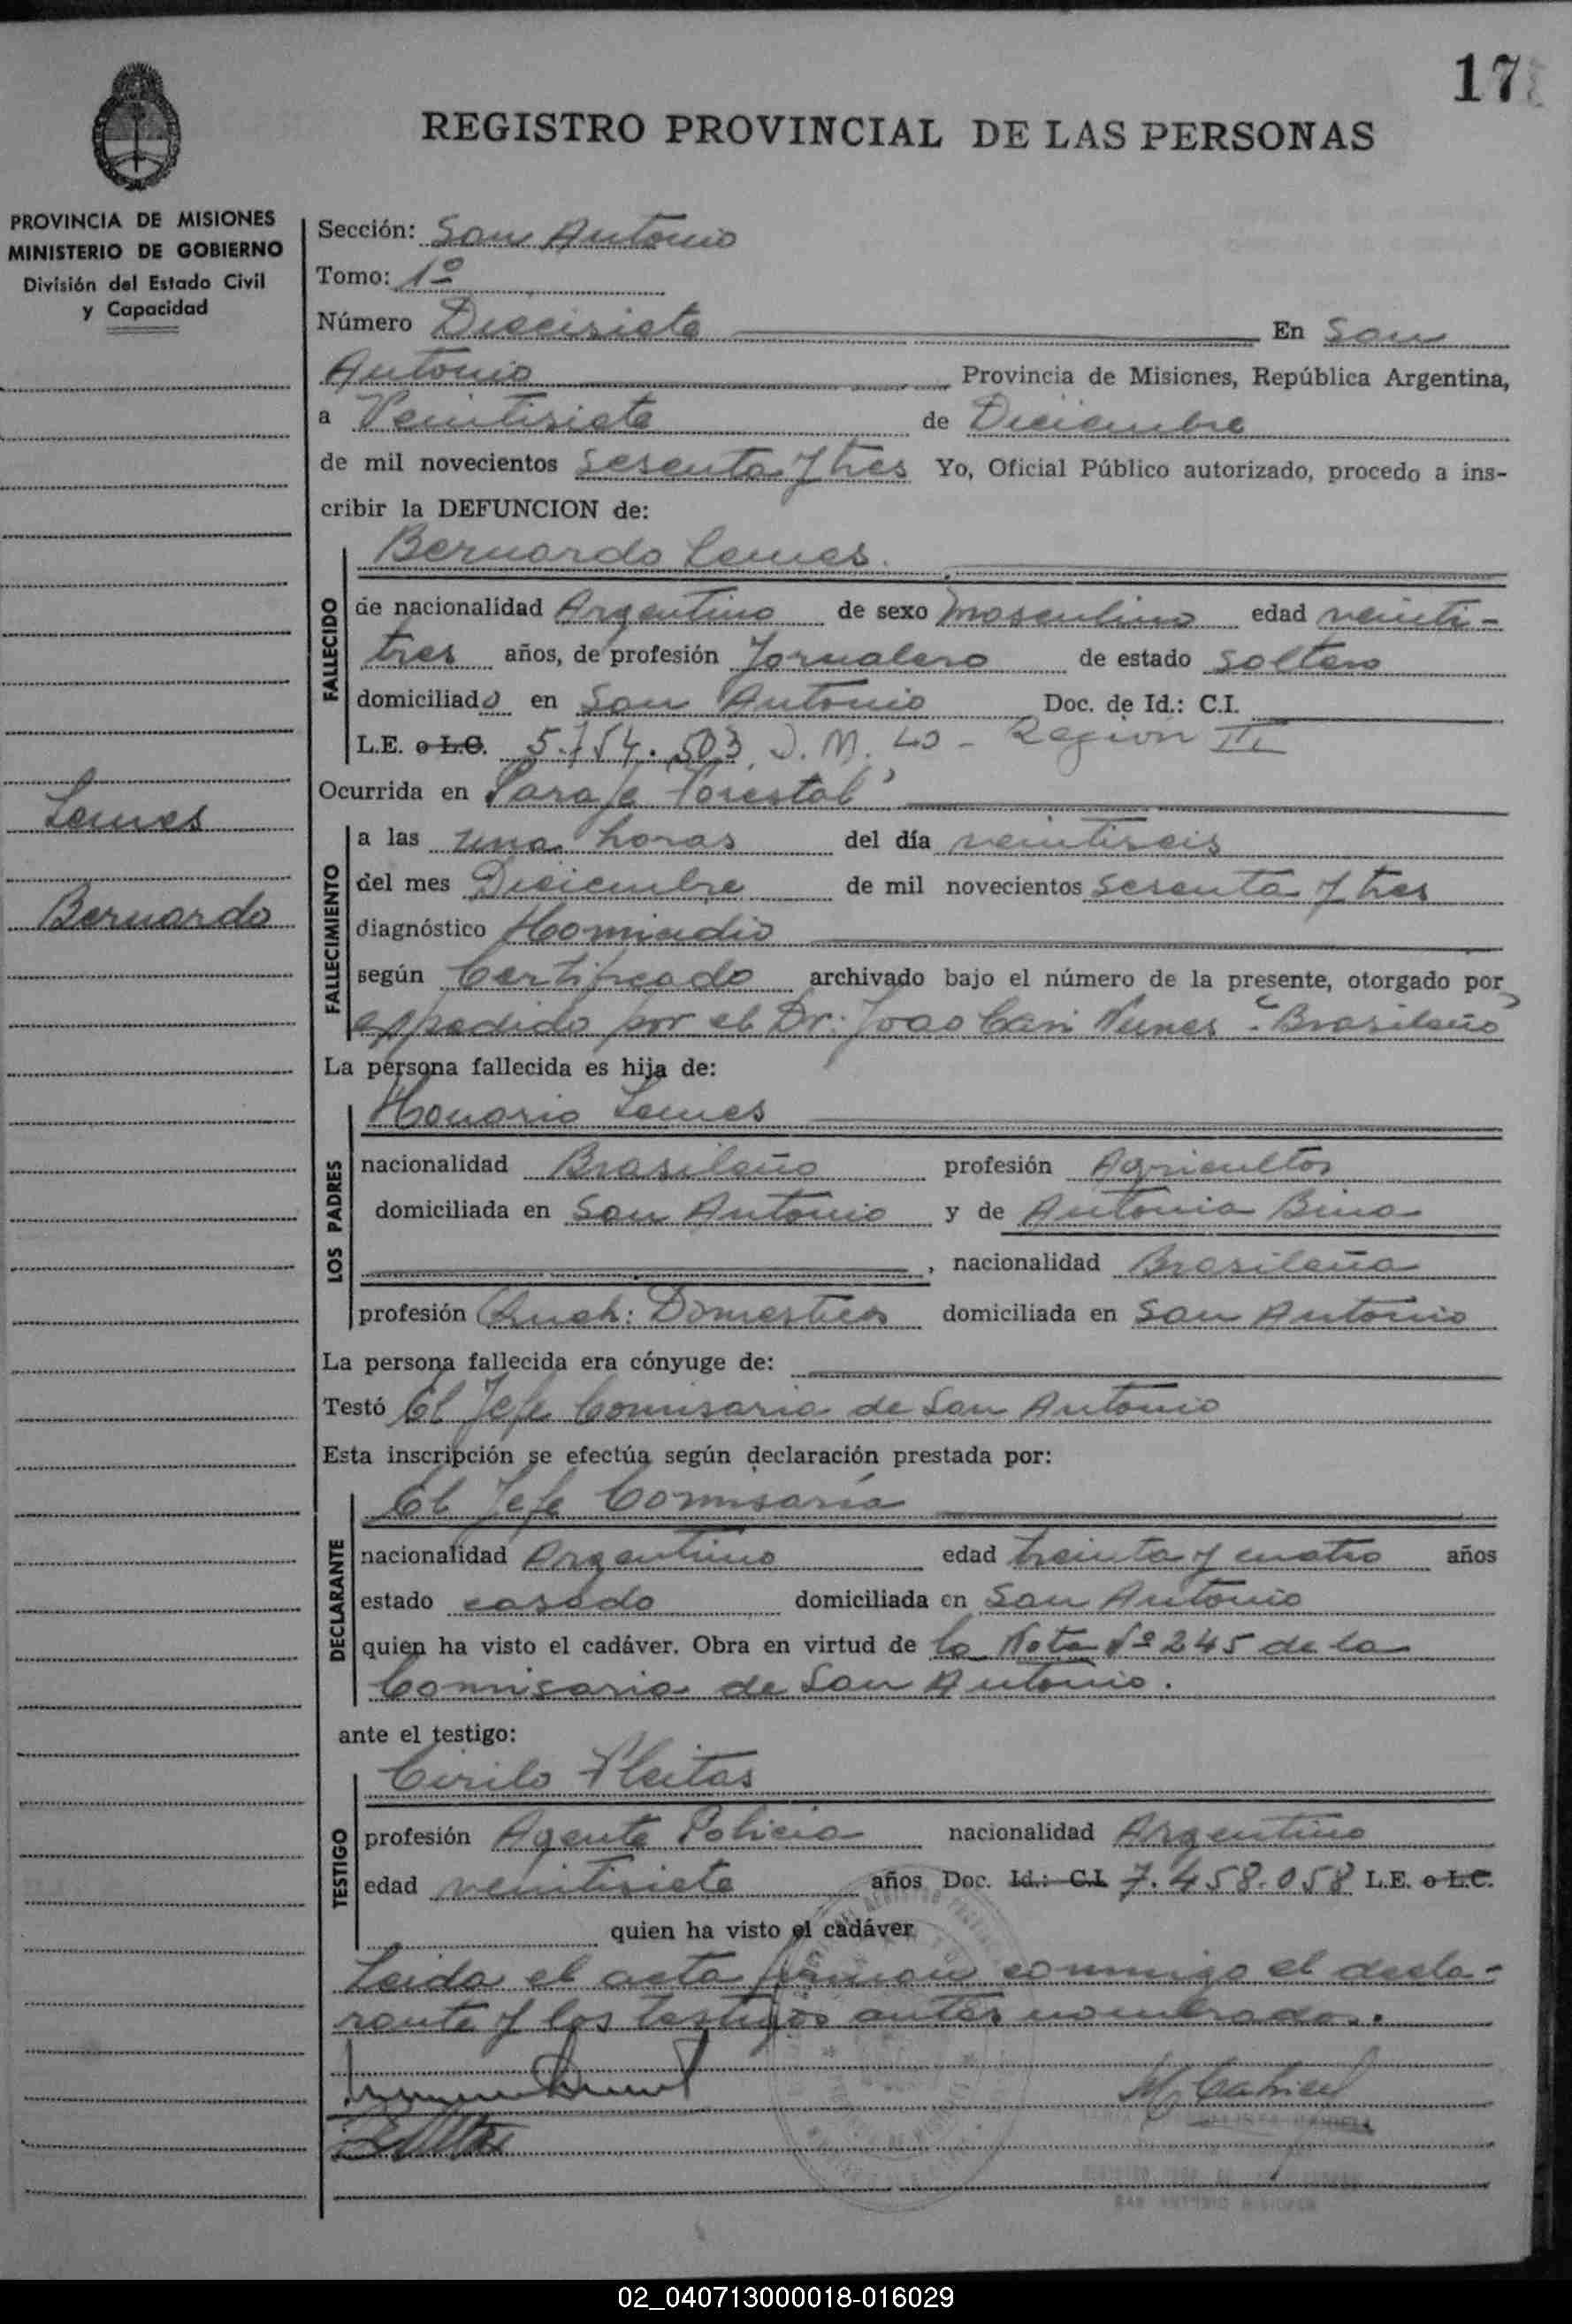 17
REGISTRO PROVINCIAL DE LAS PERSONAS
PROVINCIA DE MISIONES
MINISTERIO DE GOBIERNO
División del Estado Civil
y Capacidad
Lemes
Bernardo
Sección: San Antonio
Tomo: 1º
Número Diecisiete En San
Antonio Provincia de Misiones, República Argentina,
a Veintisiete de Diciembre
de mil novecientos sesenta y tres Yo, Oficial Público autorizado, procedo a ins-
cribir la DEFUNCION de:
FALLECIDO
Bernardo Lemes.
de nacionalidad Argentino de sexo masculino edad veinti-
tres años, de profesión Jornalero de estado soltero
domiciliado en San Antonio Doc. de Id.: C.I.
L.E. o L.C. 5.754.503 D.M. 40 - Region III
Ocurrida en Paraje Forestal
FALLECIMIENTO
a las una horas del día veintiseis
del mes Diciembre de mil novecientos sesenta y tres
diagnóstico Homicidio
según Certificado archivado bajo el número de la presente, otorgado por
expedido por el Dr: Joao Nunes - Brasileño
La persona fallecida es hija de:
LOS PADRES
Honorio Lemes
nacionalidad Brasileño profesión Agricultor
domiciliada en San Antonio y de Antonia Bino
, nacionalidad Brasileña
profesión Queh: Domesticos domiciliada en San Antonio
La persona fallecida era cónyuge de:
Testó El Jefe Comisaria de San Antonio
Esta inscripción se efectúa según declaración prestada por:
DECLARANTE
El Jefe Comisaría
nacionalidad Argentino edad treinta y cuatro años
estado casado domiciliada en San Antonio
quien ha visto el cadáver. Obra en virtud de la Nota Nº 245 de la
Comisaria de San Antonio.
ante el testigo:
TESTIGO
Cirilo Fleitas
profesión Agente Policia nacionalidad Argentino
edad veintisiete años Doc. Id.: C.I. 7.458.058 L.E. o L.C.
quien ha visto el cadáver
Leida el acta firman conmigo el decla-
rante y los testigos antes nombrados.
SAN ANTONIO MISIONES
02_040713000018-016029